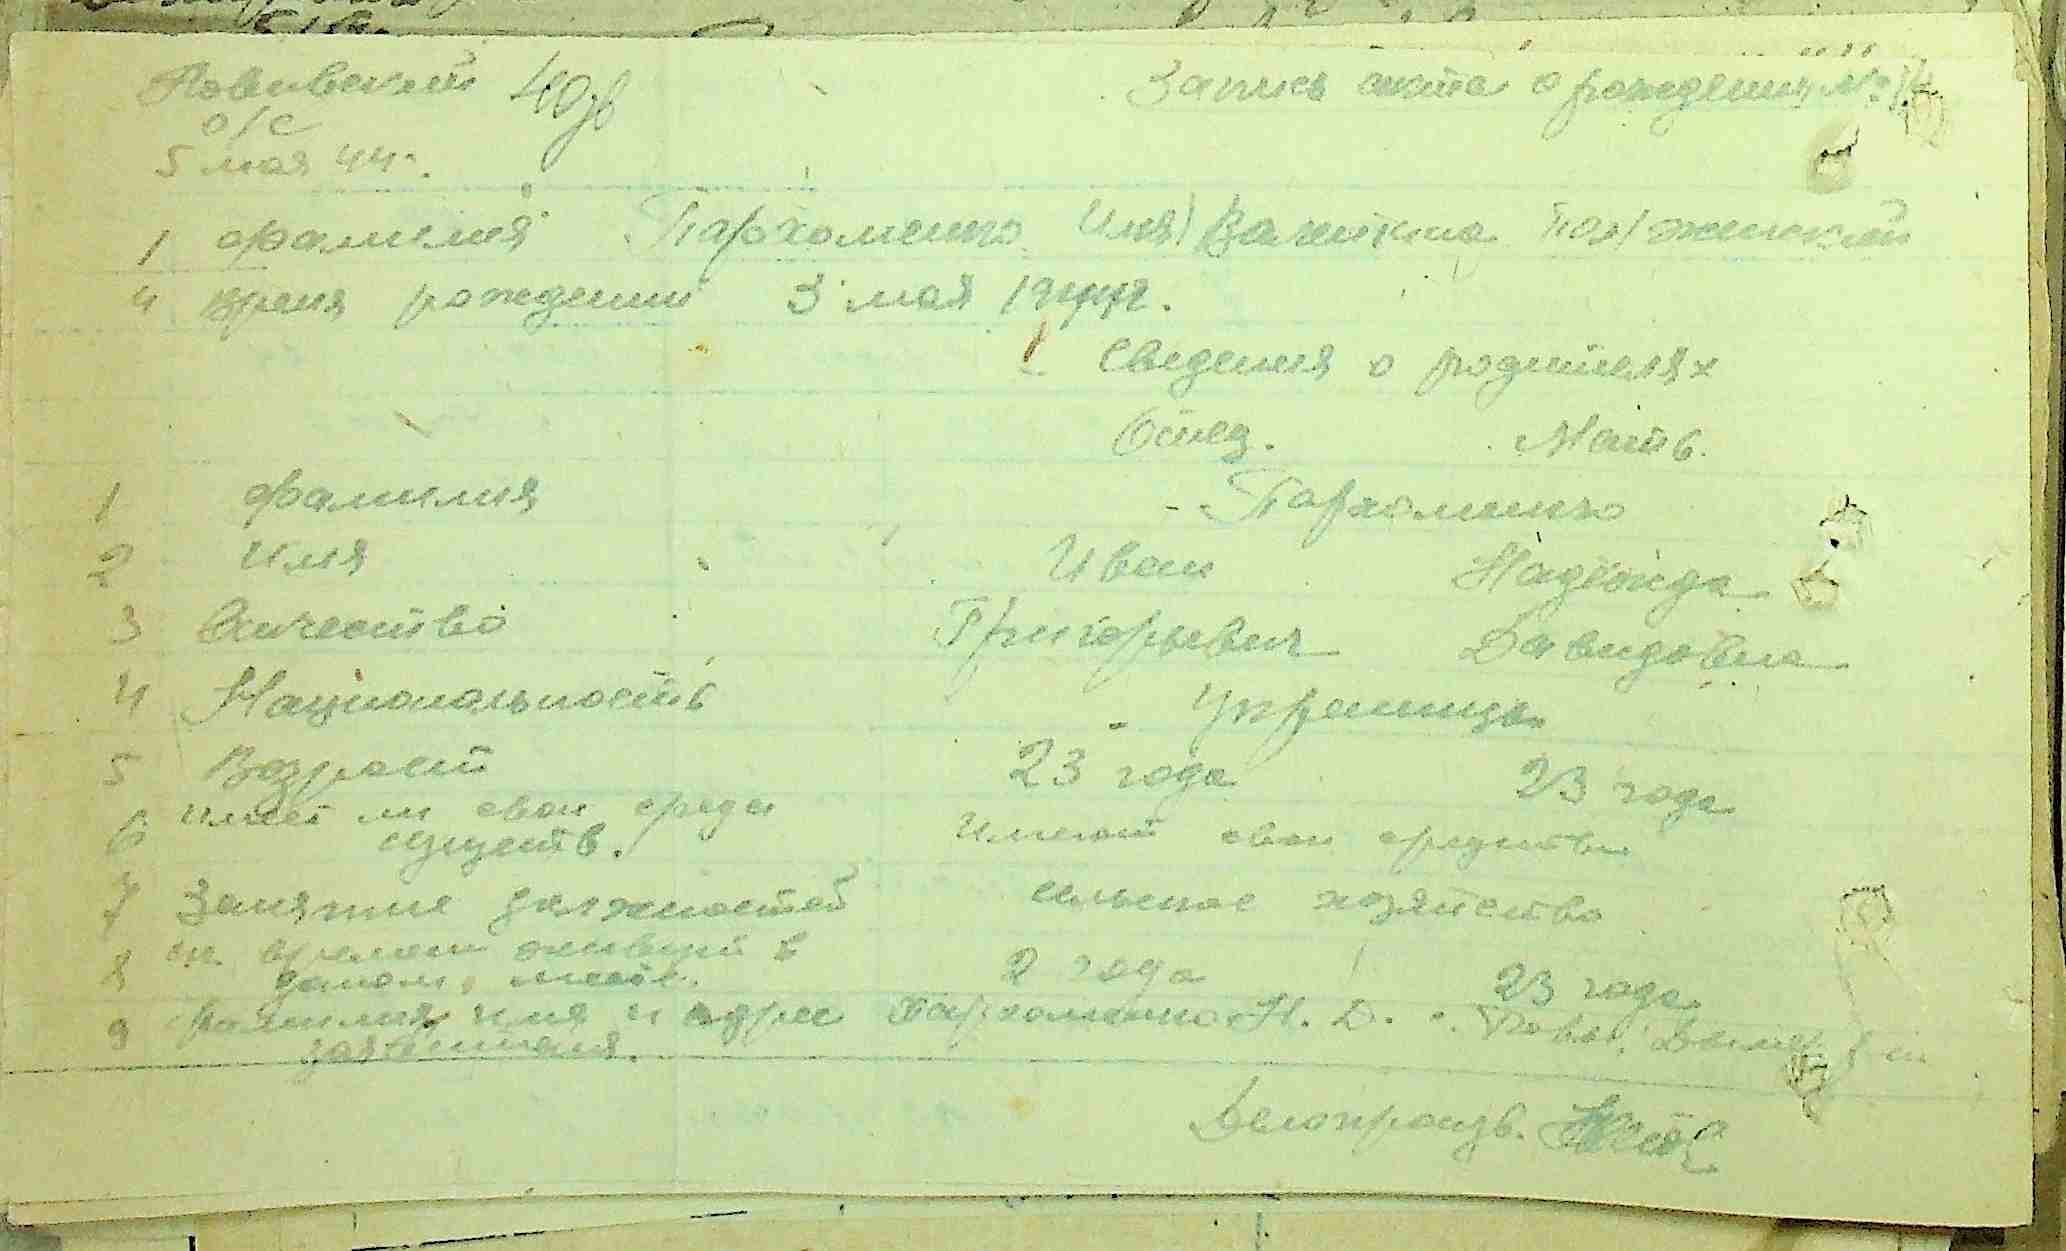 Запись акта о рождении № 14
о/с
5 мая 44г.
1 фамилия Пархоменко Имя) Валентина Пол) женский
4 время рождения 3 мая 1944г.
Сведения о родителях
Отец. Мать.
1 фамилия Пархоменко
2 Имя Иван Надежда
3 Отчество Григорьевич Давидовна
4 Национальность Украинцы
5 Возраст 23 года 23 года
6 имеет ли свои сред.
существ. Имеют свои средства
7 Занятие должностей сельское хозяйство
8 времени живут в
даном, месте. 2 года 23 года
9 фамилия имя и адрес Пархоменко Н. Д.
заявителя.
Делопроизв.